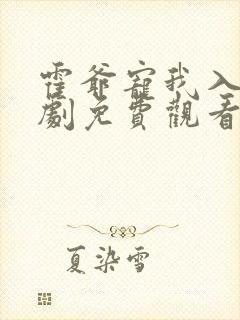 霍爺寵我入
劇免費觀看
夏染雪